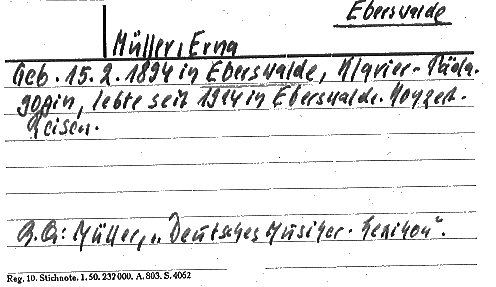 Eberswalde
Müller, Erna
Geb. 15. 2. 1894 in Eberswalde, Klavier-Päda-
gogin, lebte seit 1914 in Eberswalde. Konzert-
Reisen.
Müller, „Deutsches Musiker-Lexikon".
Reg. 10. Stichnote. 1. 50. 232000. A. 803. S. 4062